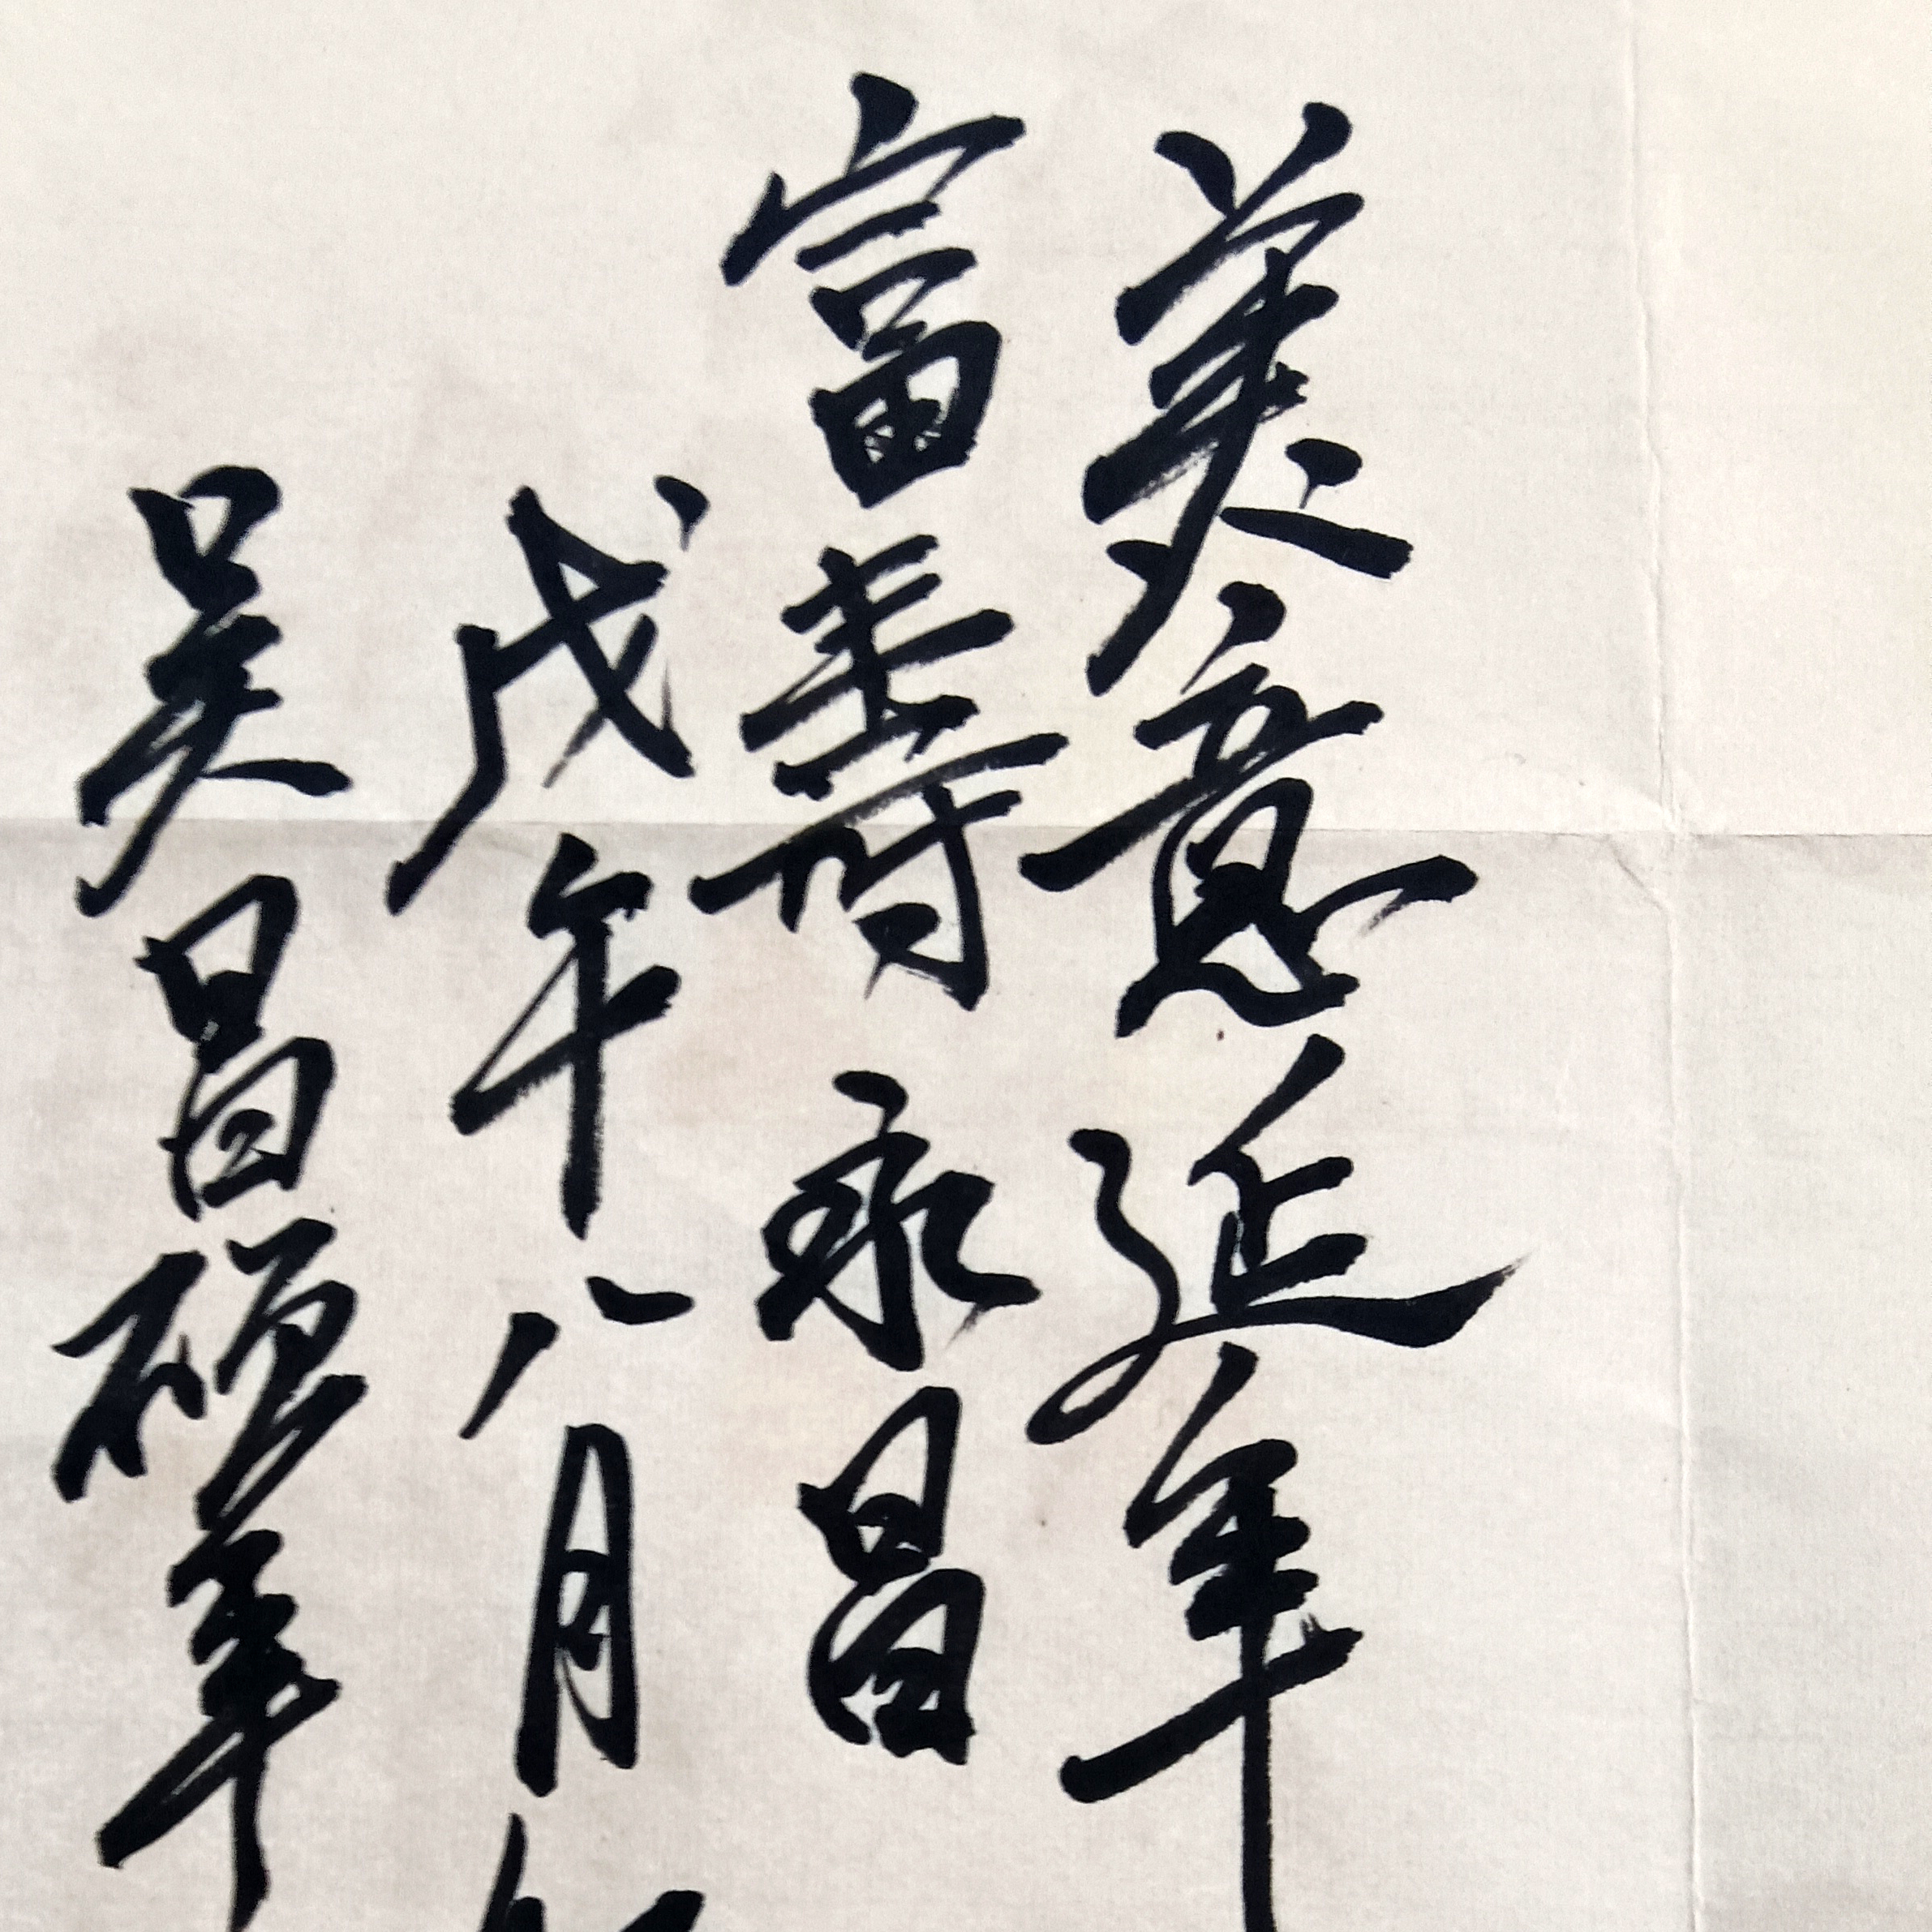 美意延年
富壽永昌
戊午八月
吳昌碩年